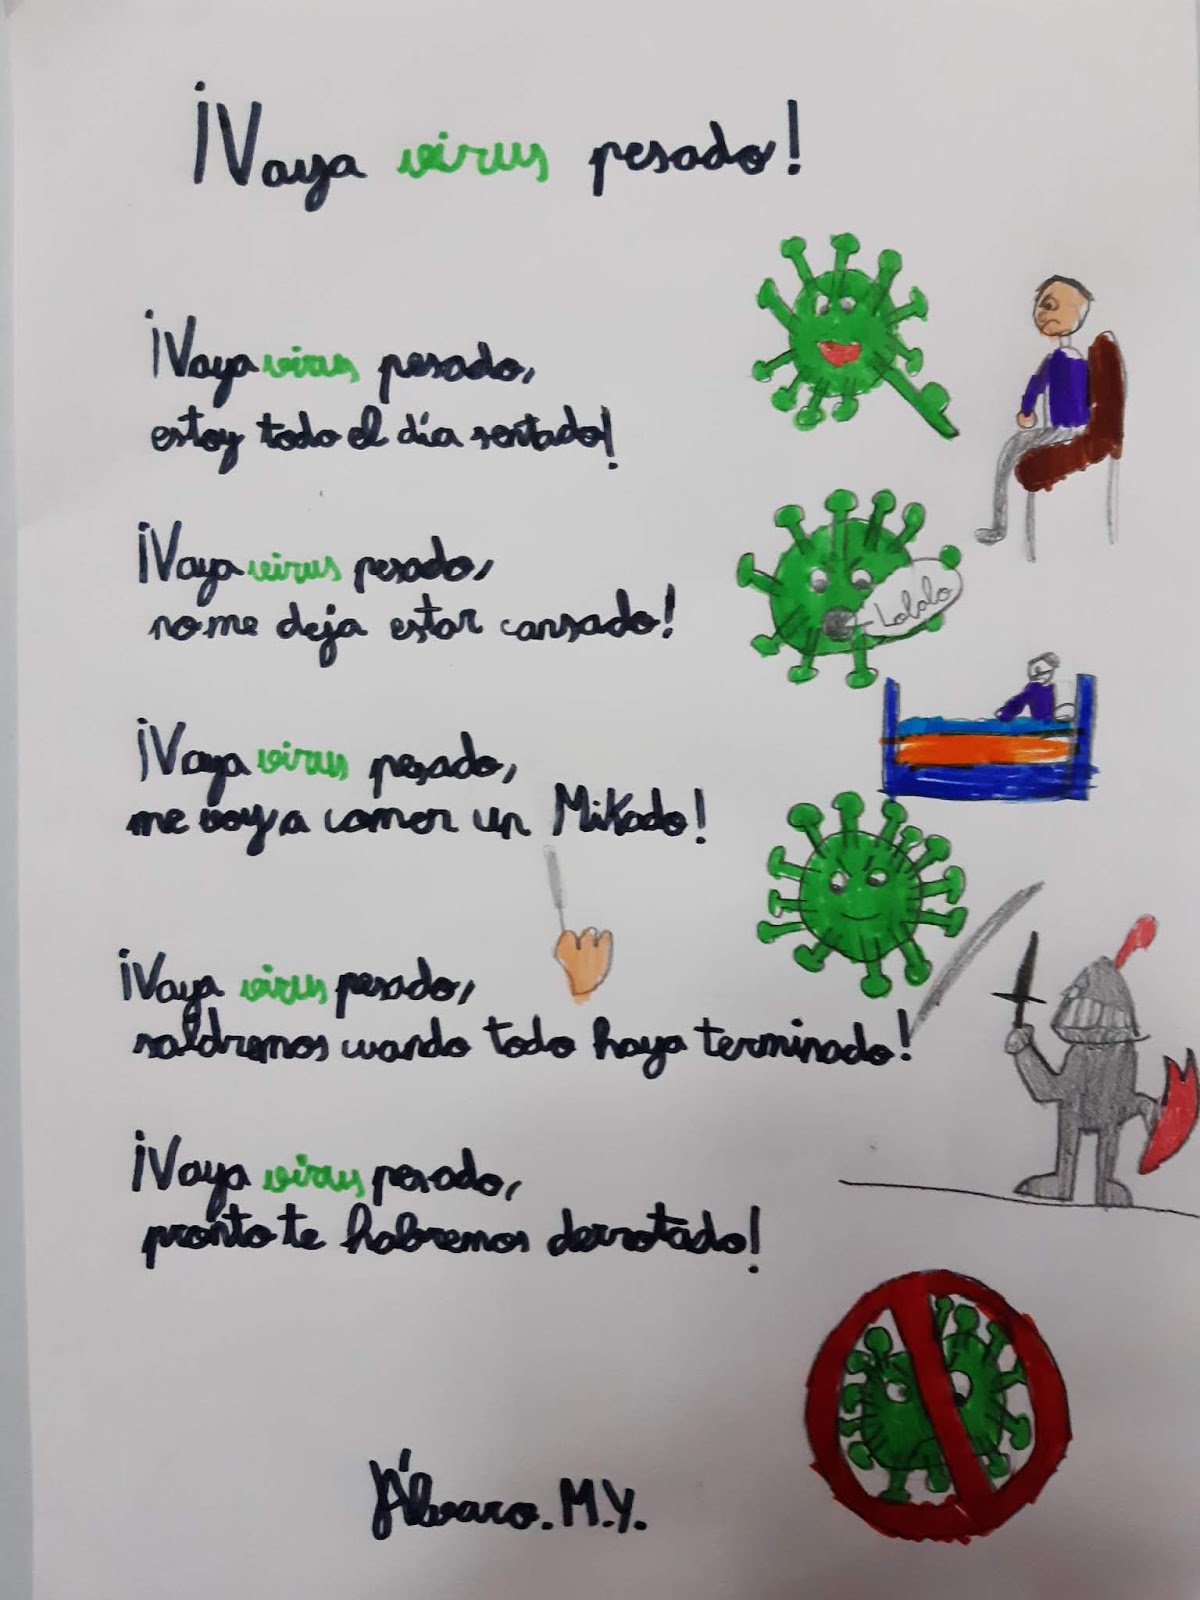 ¡Vaya virus pesado!
¡Vaya virus pesado,
estoy todo el día sentado!
¡Vaya virus pesado,
no me deja estar cansado!
Lololo
¡Vaya virus pesado,
me voy a comer un Mikado!
¡Vaya virus pesado,
saldremos cuando todo haya terminado!
¡Vaya virus pesado,
pronto te habremos derrotado!
Álvaro. M.Y.